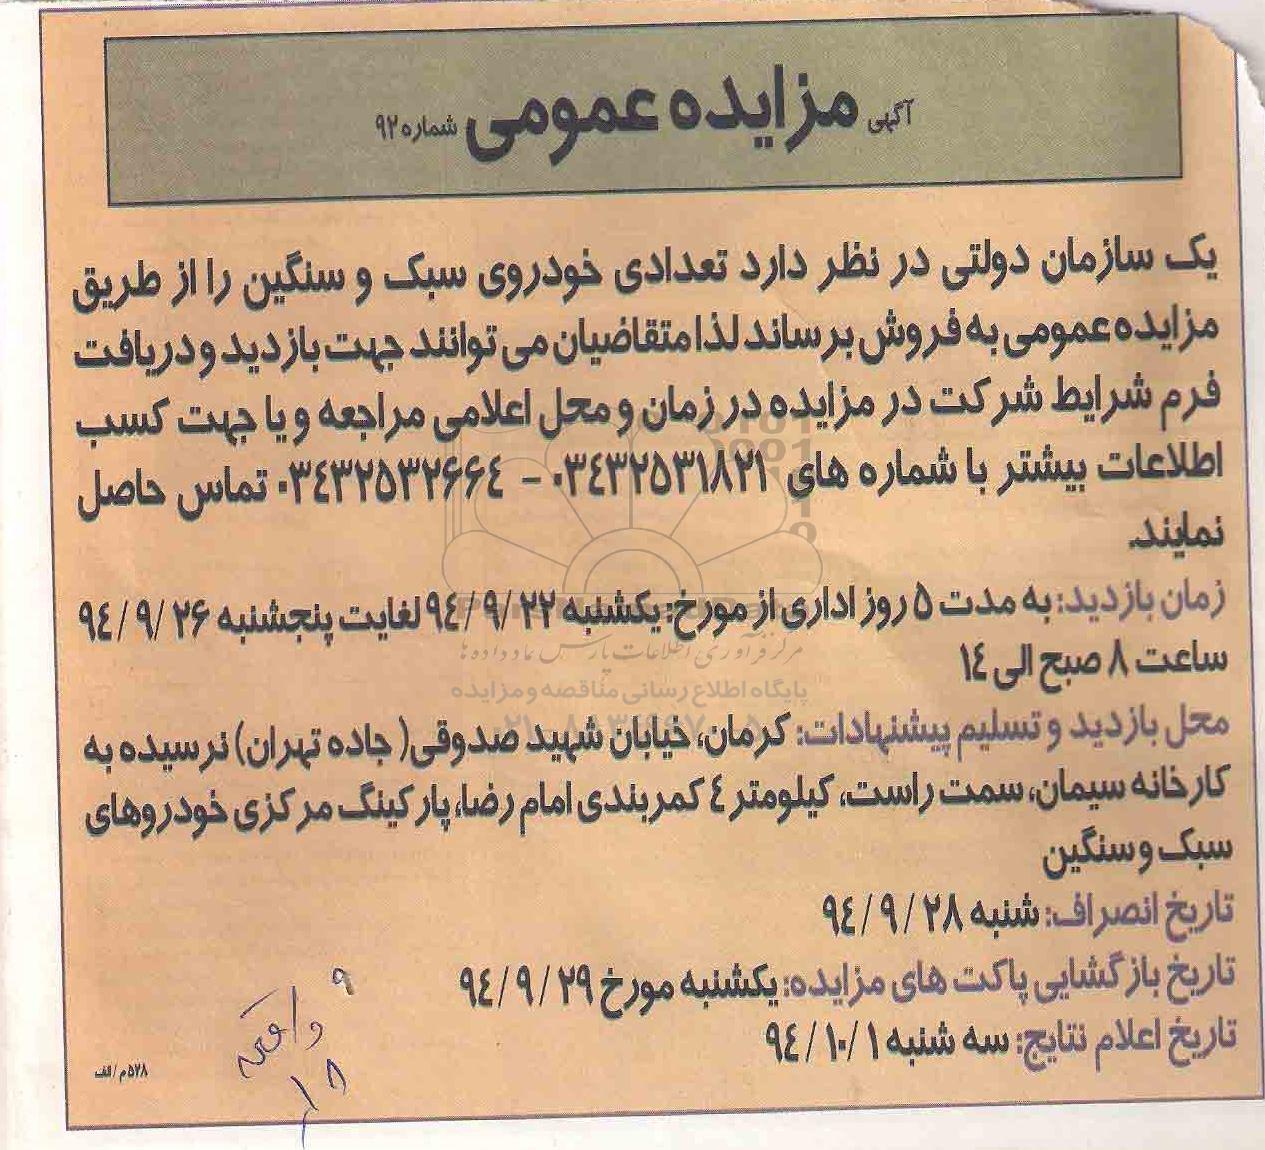 آگهی مزایده عمومی شماره ۹۲
یک سازمان دولتی در نظر دارد تعدادی خودروی سبک و سنگین را از طریق
مزایده عمومی به فروش برساند لذا متقاضیان می توانند جهت بازدید و دریافت
فرم شرایط شرکت در مزایده در زمان و محل اعلامی مراجعه و یا جهت کسب
اطلاعات بیشتر با شماره های ۰۳۴۳۲۵۳۱۸۲۱ – ۰۳۴۳۲۵۳۲۶۶۴ تماس حاصل
نمایند.
زمان بازدید: به مدت ۵ روز اداری از مورخ: یکشنبه ۹۴/۹/۲۲ لغایت پنجشنبه ۹۴/۹/۲۶
ساعت ۸ صبح الی ۱۴
محل بازدید و تسلیم پیشنهادات: کرمان، خیابان شهید صدوقی( جاده تهران) نرسیده به
کارخانه سیمان، سمت راست، کیلومتر ٤ کمربندی امام رضا، پارکینگ مرکزی خودروهای
سبک و سنگین
تاریخ انصراف: شنبه ۹۴/۹/۲۸
تاریخ بازگشایی پاکت های مزایده: یکشنبه مورخ ۹۴/۹/۲۹
تاریخ اعلام نتایج: سه شنبه ۹۴/۱۰/۱
۵۷۸ م/الف
مرکز فرآوری اطلاعات پارس نماد داده ها
پایگاه اطلاع رسانی مناقصه و مزایده